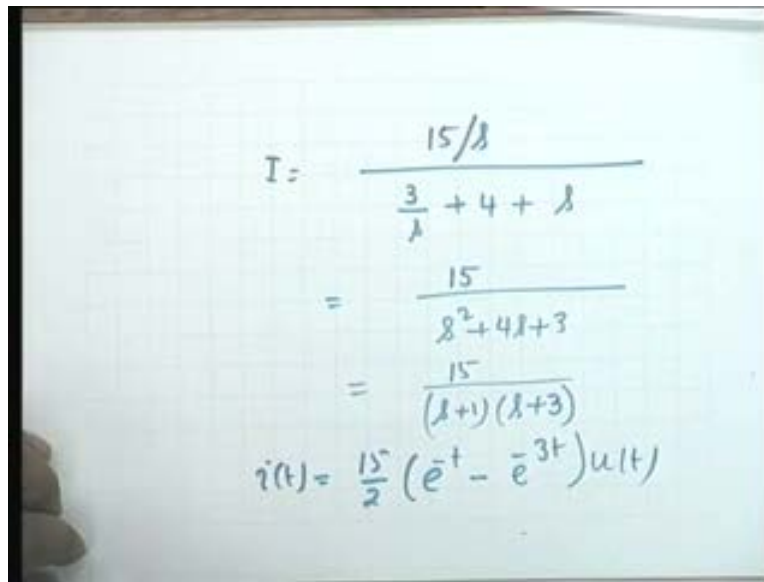 I = 15/s
3/s + 4 + s
= 15
s² + 4s + 3
= 15
(s+1)(s+3)
i(t) = 15/2 (e⁻ᵗ - e⁻³ᵗ) u(t)